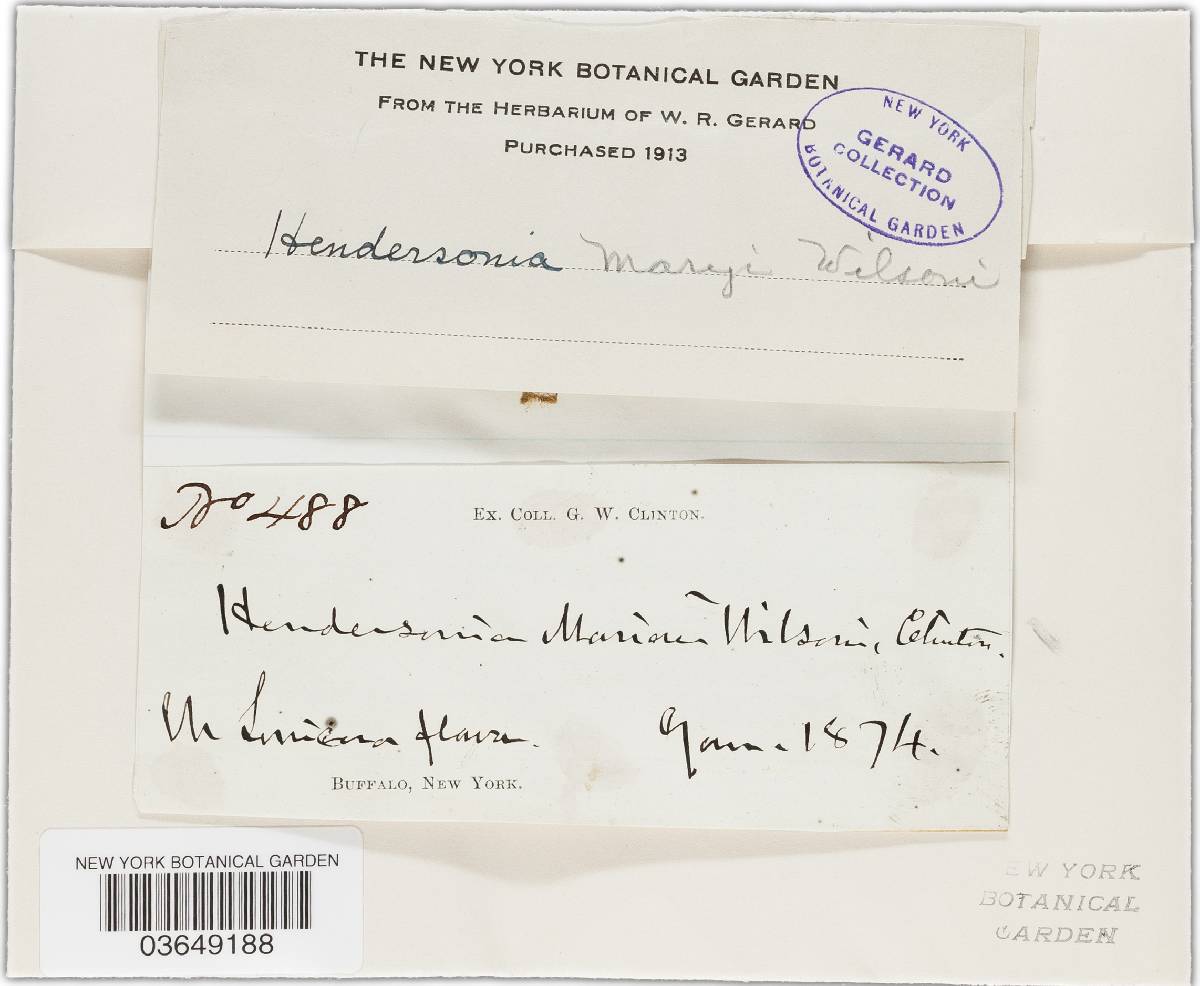 THE NEW YORK BOTANICAL GARDEN
FROM THE HERBARIUM OF W. R. GERARD
PURCHASED 1913
NEW YORK
GERARD
COLLECTION
BOTANICAL GARDEN
Hendersonia Maryi Wilsoni
No 488
EX. COLL. G. W. CLINTON.
Hendersonia Wilsoni, Clinton.
Lonicera flava.
1874.
BUFFALO, NEW YORK.
NEW YORK BOTANICAL GARDEN
03649188
EW YORK
BOTANICAL
GARDEN